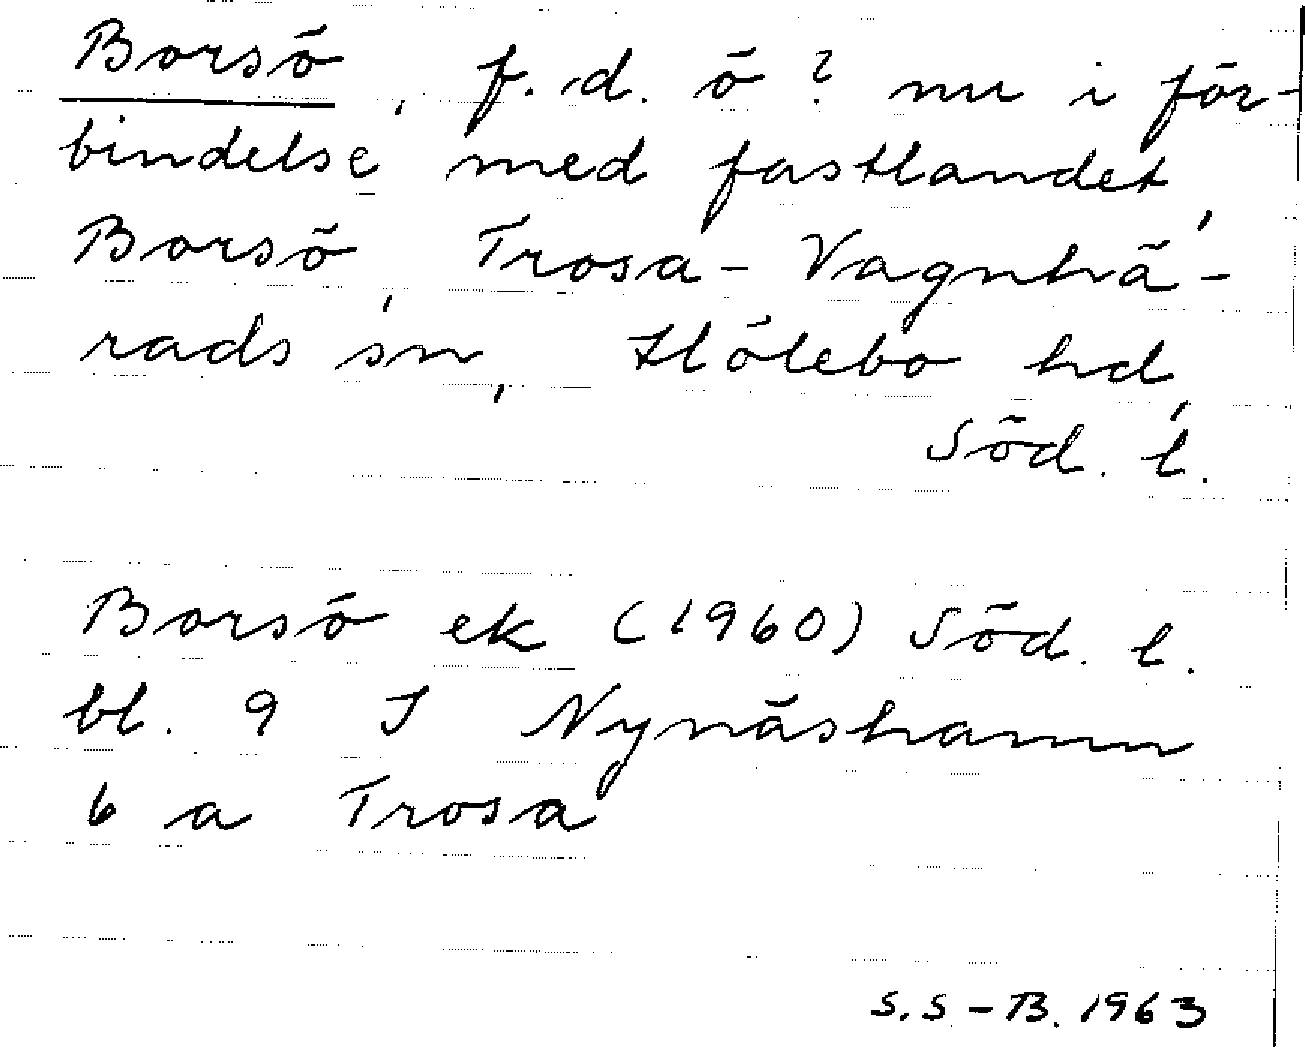 Borsö, f.d. ö? nu i för-
bindelse med fastlandet,
Borsö, Trosa-Vagnhä-
rads sn, Hölebo hd,
Söd. l.
Borsö ek (1960) Söd. l.
bl. 9 I Nynäshamn
6 a Trosa
S.S-B. 1963